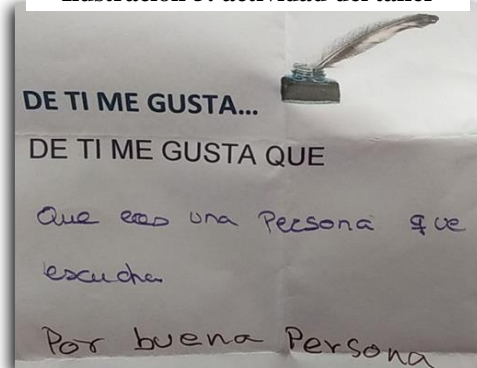 DE TI ME GUSTA...
DE TI ME GUSTA QUE
Que eres una Persona que
escucha
Por buena Persona